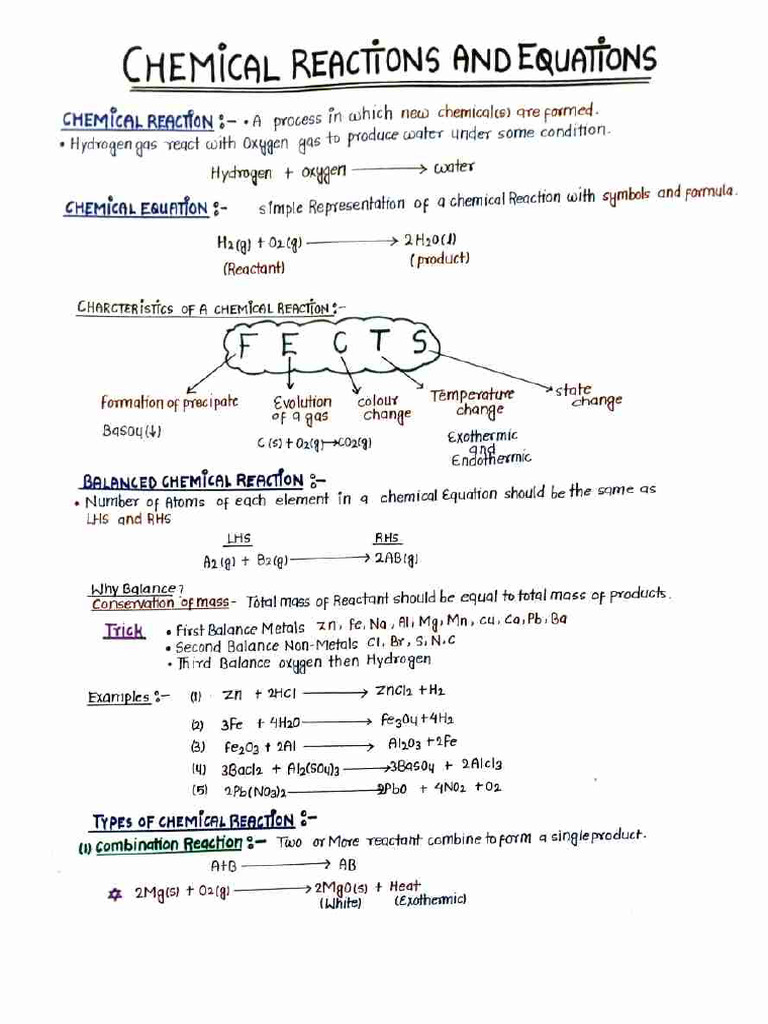 CHEMICAL REACTIONS AND EQUATIONS
CHEMICAL REACTION :- • A process in which new chemical(s) are formed.
• Hydrogen gas react with Oxygen gas to produce water under some condition.
Hydrogen + oxygen → water
CHEMICAL EQUATION :- simple Representation of a chemical Reaction with symbols and formula.
H2(g) + O2(g) → 2H2O(l)
(Reactant) (product)
CHARCTERISTICS OF A CHEMICAL REACTION :-
F E C T S
Formation of precipate Evolution of a gas colour change Temperature change state change
BaSO4(↓) C(s) + O2(g) → CO2(g) Exothermic and Endothermic
BALANCED CHEMICAL REACTION :-
• Number of Atoms of each element in a chemical Equation should be the same as
LHS and RHS
LHS RHS
A2(g) + B2(g) → 2AB(g)
Why Balance?
Conservation of mass - Total mass of Reactant should be equal to total mass of products.
Trick • First Balance Metals Zn, Fe, Na, Al, Mg, Mn, Cu, Ca, Pb, Ba
• Second Balance Non-Metals Cl, Br, S, N, C
• Third Balance oxygen then Hydrogen
Examples :- (1) Zn + 2HCl → ZnCl2 + H2
(2) 3Fe + 4H2O → Fe3O4 + 4H2
(3) Fe2O3 + 2Al → Al2O3 + 2Fe
(4) 3BaCl2 + Al2(SO4)3 → 3BaSO4 + 2AlCl3
(5) 2Pb(NO3)2 → 2PbO + 4NO2 + O2
TYPES OF CHEMICAL REACTION :-
(1) Combination Reaction :- Two or More reactant combine to form a single product.
A+B → AB
✡ 2Mg(s) + O2(g) → 2MgO(s) + Heat
(White) (Exothermic)